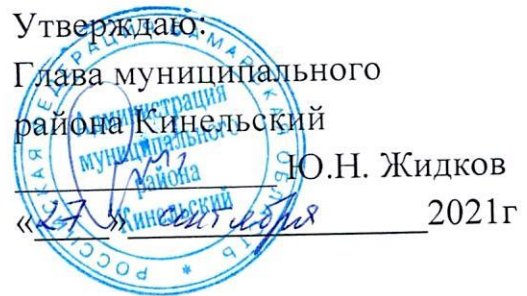 Утверждаю:
Глава муниципального
района Кинельский
Ю.Н. Жидков
«27» сентября 2021г
РОССИЙСКАЯ ФЕДЕРАЦИЯ * САМАРСКАЯ ОБЛАСТЬ *
Администрация
муниципального
района
Кинельский